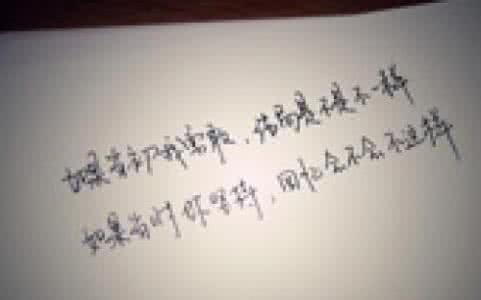 如果当初我勇敢，结局是不是不一样
如果当时你坚持，回忆会不会不这样